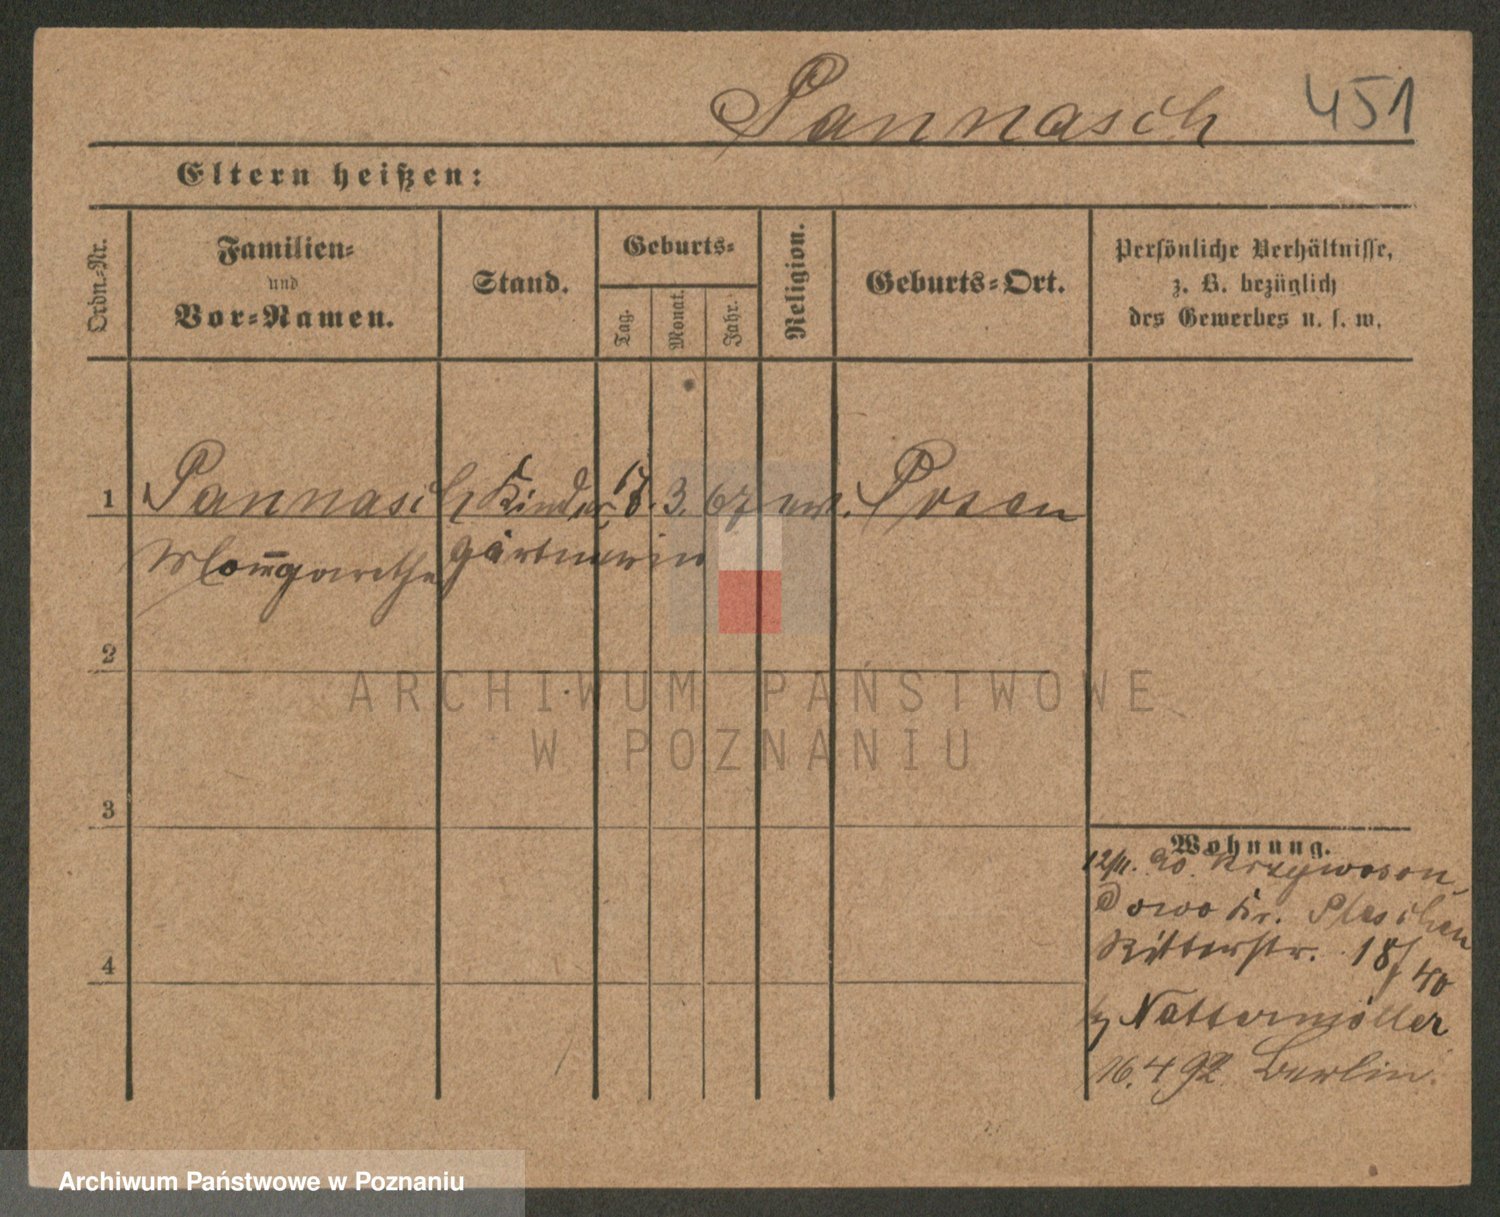 Pannasch 451
Eltern heißen:
Ordn.-Nr.
Familien-
und
Vor-Namen.
Stand.
Geburts-
Tag.
Monat.
Jahr.
Religion.
Geburts-Ort.
Persönliche Verhältnisse,
z. B. bezüglich
des Gewerbes u. s. w.
1 Pannasch Kinder 3. 67 ew. Posen
Margarethe gärtnerin
2
3
4
Wohnung.
12/11. 90. Krzywoson
dowo Kr. Pleschen
Ritterstr. 18/40
Nattermöller
16.4.92. Berlin.
ARCHIWUM PAŃSTWOWE
W POZNANIU
Archiwum Państwowe w Poznaniu